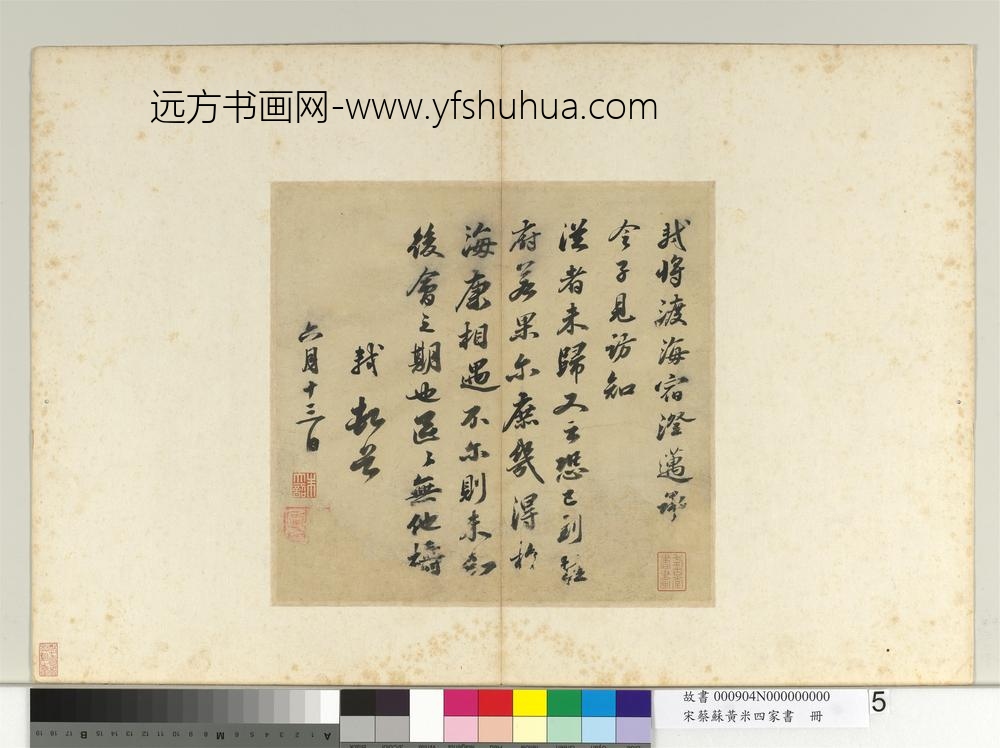 远方书画网-www.yfshuhua.com
軾將渡海宿澄邁承
令子見訪知
從者未歸又云恐已到桂
府若果尔庶幾得於
海康相遇不尔則未知
後會之期也區々無他禱
軾頓首
六月十三日
故書 000904N000000000
宋蔡蘇黃米四家書 冊
5